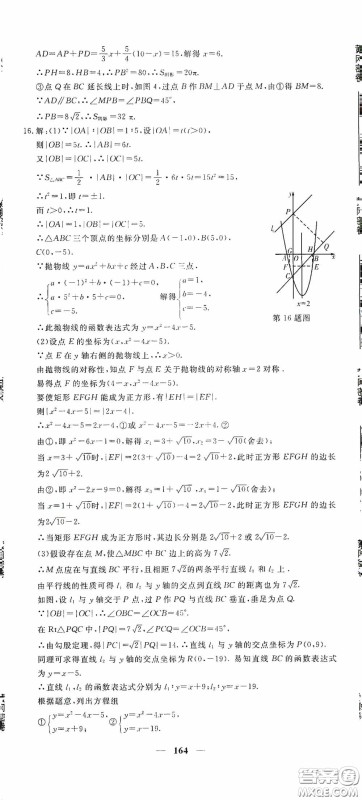 AD=AP+PD=5/3x+5/4(10-x)=15.解得 x=6.
∴PH=8,HB=4,∴PB²=80,∴S阴影=20π.
③点 Q 在 BC 延长线上时,如图 4,过点 B 作 BM⊥AD 于点 M,由①得 BM=8.
∵AD∥BC,∴∠MPB=∠PBQ=45°,
∴PB=8√2,∴S阴影=32 π.
16.解:(1)∵|OA|:|OB|=1:5,设|OA|=t(t>0),
则|OB|=5t.∴|AB|=6t.
又∵|OB|=|OC|,∴|OC|=5t.
∵S△ABC=1/2·|AB|·|OC|=1/2·6t·5t=15t²=15.
∴t²=1,即 t=±1.
而 t>0,∴t=1.
∴|OA|=1,|OB|=|OC|=5.
∴△ABC 三个顶点的坐标分别是 A(-1,0),B(5,0),
C(0,-5).
∵抛物线 y=ax²+bx+c 经过 A,B,C 三点,
∴{a·(-1)²+b·(-1)+c=0, a·5²+b·5+c=0, c=-5. 解得{a=1, b=-4, c=-5.
∴此抛物线的函数表达式为 y=x²-4x-5.
y
P
Q
G
H
A
O
B
x
F
E
C
x=2
第 16 题图
(2)设点 E 的坐标为(x,x²-4x-5).
∵点 E 在 y 轴右侧的抛物线上,∴x>0.
由抛物线的对称性,知点 F 与点 E 关于抛物线的对称轴 x=2 对称.
易得点 F 的坐标为(4-x,x²-4x-5).
要使矩形 EFGH 能成为正方形,有|EH|=|EF|.
则|x²-4x-5|=|2x-4|.
∴x²-4x-5=2x-4,①或 x²-4x-5=-(2x-4),②
由①,即 x²-6x-1=0.解得 x₁=3+√10,x₂=3-√10(舍去);
当 x=3+√10时,|EF|=2(3+√10)-4=2+2√10,此时正方形 EFGH 的边长为 2√10+2;
由②,即 x²-2x-9=0.解得 x₃=1+√10,x₄=1-√10(舍去);
当 x=1+√10时,|EF|=|2(1+√10)-4|=2√10-2,此时正方形 EFGH 的边长为 2√10-2.
∴当矩形 EFGH 成为正方形时,其边长分别是 2√10+2 或 2√10-2.
(3)假设存在点 M,使△MBC 中 BC 边上的高为 7√2.
∴M 点应在与直线 BC 平行,且相距7√2的两条平行直线 l₁ 和 l₂ 上.
由平行线的性质可得 l₁ 和 l₂ 与 y 轴的交点到直线 BC 的距离也为 7√2.
如图,设 l₁ 与 y 轴交于 P 点,过 P 作 PQ 与点线 BC 垂直,垂足为 Q.
∵|OB|=|OC|,∴∠OBC=∠OCB=45°.
在 Rt△PQC 中,|PQ|=7√2,∠PCQ=∠OCB=45°,
∴由勾股定理,得|PC|=√2|PQ|=14.∴直线 l₁ 与 y 轴的交点坐标为 P(0,9).
同理可求得直线 l₂ 与 y 轴的交点坐标为 R(0,-19).易知直线 BC 的函数表达式为 y=x-5.
∴直线 l₁,l₂ 的函数表达式分别为 l₁:y=x+9;l₂:y=x-19.
根据题意,列出方程组
①{y=x²-4x-5, y=x+9; ②{y=x²-4x-5, y=x-19.
164
答案圈